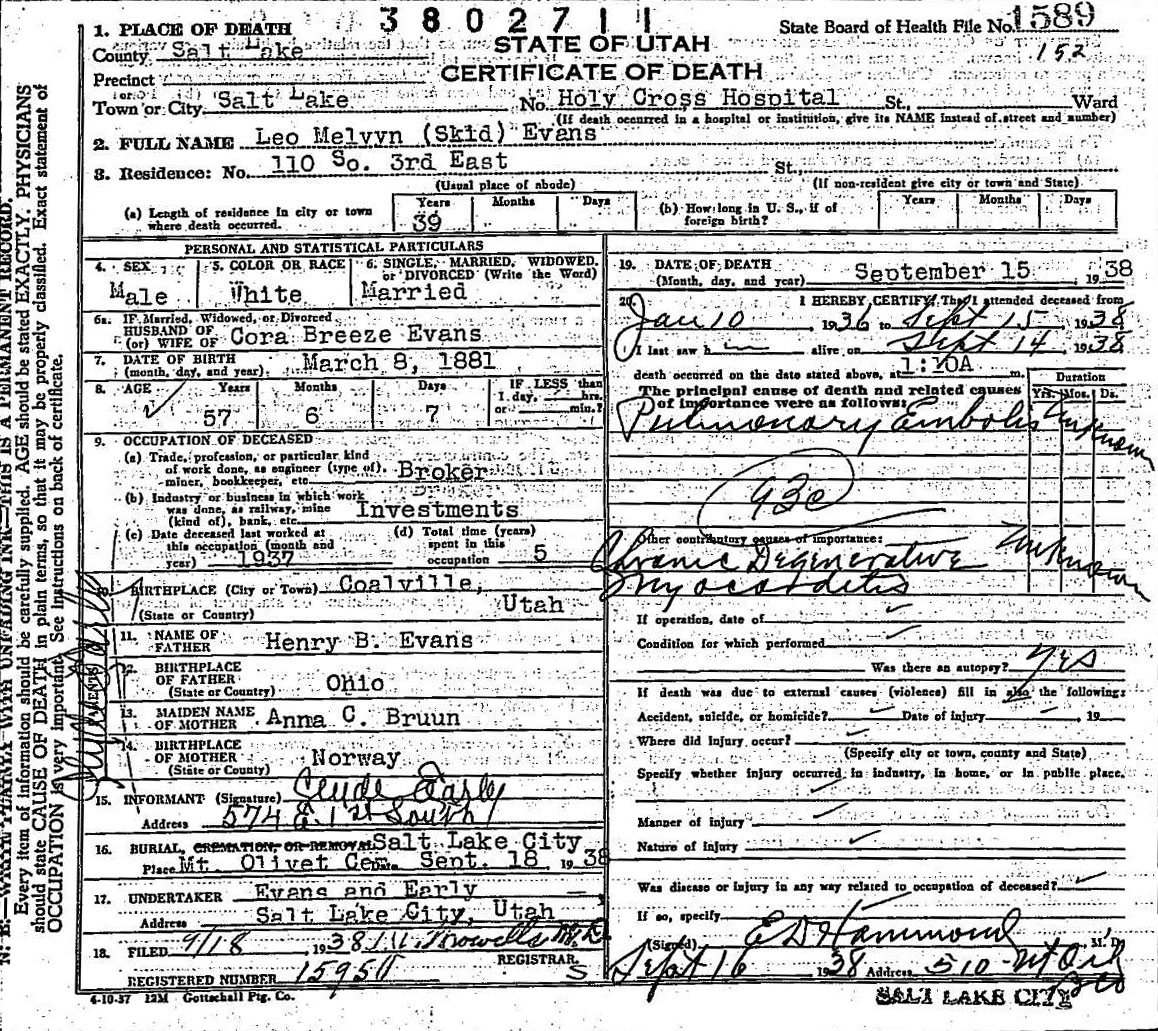 3802711
State Board of Health File No. 1589
152
1. PLACE OF DEATH
STATE OF UTAH
CERTIFICATE OF DEATH
County Salt Lake
Precinct
Town or City Salt Lake No. Holy Cross Hospital St., Ward
(If death occurred in a hospital or institution, give its NAME instead of street and number)
2. FULL NAME Leo Melvyn (Skid) Evans
3. Residence: No. 110 So. 3rd East St.,
(Usual place of abode) (If non-resident give city or town and State)
(a) Length of residence in city or town where death occurred. Years 39 Months Days
(b) How long in U. S., if of foreign birth? Years Months Days
PERSONAL AND STATISTICAL PARTICULARS
4. SEX Male
5. COLOR OR RACE White
6. SINGLE, MARRIED, WIDOWED, or DIVORCED (Write the Word) Married
6a. IF Married, Widowed, or Divorced
HUSBAND OF
(or) WIFE OF Cora Breeze Evans
7. DATE OF BIRTH
(month, day, and year) March 8, 1881
8. AGE Years 57 Months 6 Days 7 IF LESS than 1 day, hrs. or min.?
9. OCCUPATION OF DECEASED
(a) Trade, profession, or particular kind of work done, as engineer (type of), miner, bookkeeper, etc. Broker
(b) Industry or business in which work was done, as railway, mine (kind of), bank, etc. Investments
(c) Date deceased last worked at this occupation (month and year) 1937
(d) Total time (years) spent in this occupation 5
10. BIRTHPLACE (City or Town) Coalville,
(State or Country) Utah
PARENTS
11. NAME OF FATHER Henry B. Evans
12. BIRTHPLACE OF FATHER (State or Country) Ohio
13. MAIDEN NAME OF MOTHER Anna C. Bruun
14. BIRTHPLACE OF MOTHER (State or Country) Norway
15. INFORMANT (Signature) Clyde Early
Address 574 E. 1st South
16. BURIAL, CREMATION, OR REMOVAL Salt Lake City
Place Mt. Olivet Cem. Date Sept. 18, 1938
17. UNDERTAKER Evans and Early
Address Salt Lake City, Utah
18. FILED 9/18 1938 M. D.
REGISTRAR.
REGISTERED NUMBER 15950 S
4-10-37 12M Gottschall Ptg. Co.
19. DATE OF DEATH
(Month, day, and year) September 15, 1938
20. I HEREBY CERTIFY, That I attended deceased from
Jan 10 1936 to Sept 15, 1938
I last saw h im alive on Sept 14, 1938
death occurred on the date stated above, at 1:10A m.
The principal cause of death and related causes of importance were as follows:
Duration
Yrs. Mos. Ds.
Pulmonary Embolis Unknown
93c
Other contributory causes of importance:
Chronic Degenerative Unknown
Myocarditis
If operation, date of
Condition for which performed
Was there an autopsy? Yes
If death was due to external causes (violence) fill in also the following:
Accident, suicide, or homicide? Date of injury , 19
Where did injury occur?
(Specify city or town, county and State)
Specify whether injury occurred in industry, in home, or in public place.
Manner of injury
Nature of injury
Was disease or injury in any way related to occupation of deceased?
If so, specify
(Signed) E D Hammond, M. D.
Sept 16 1938 Address 510
SALT LAKE CITY
N. B.—WRITE PLAINLY WITH UNFADING INK—THIS IS A PERMANENT RECORD.
Every item of information should be carefully supplied. AGE should be stated EXACTLY. PHYSICIANS
should state CAUSE OF DEATH in plain terms, so that it may be properly classified. Exact statement of
OCCUPATION is very important. See instructions on back of certificate.